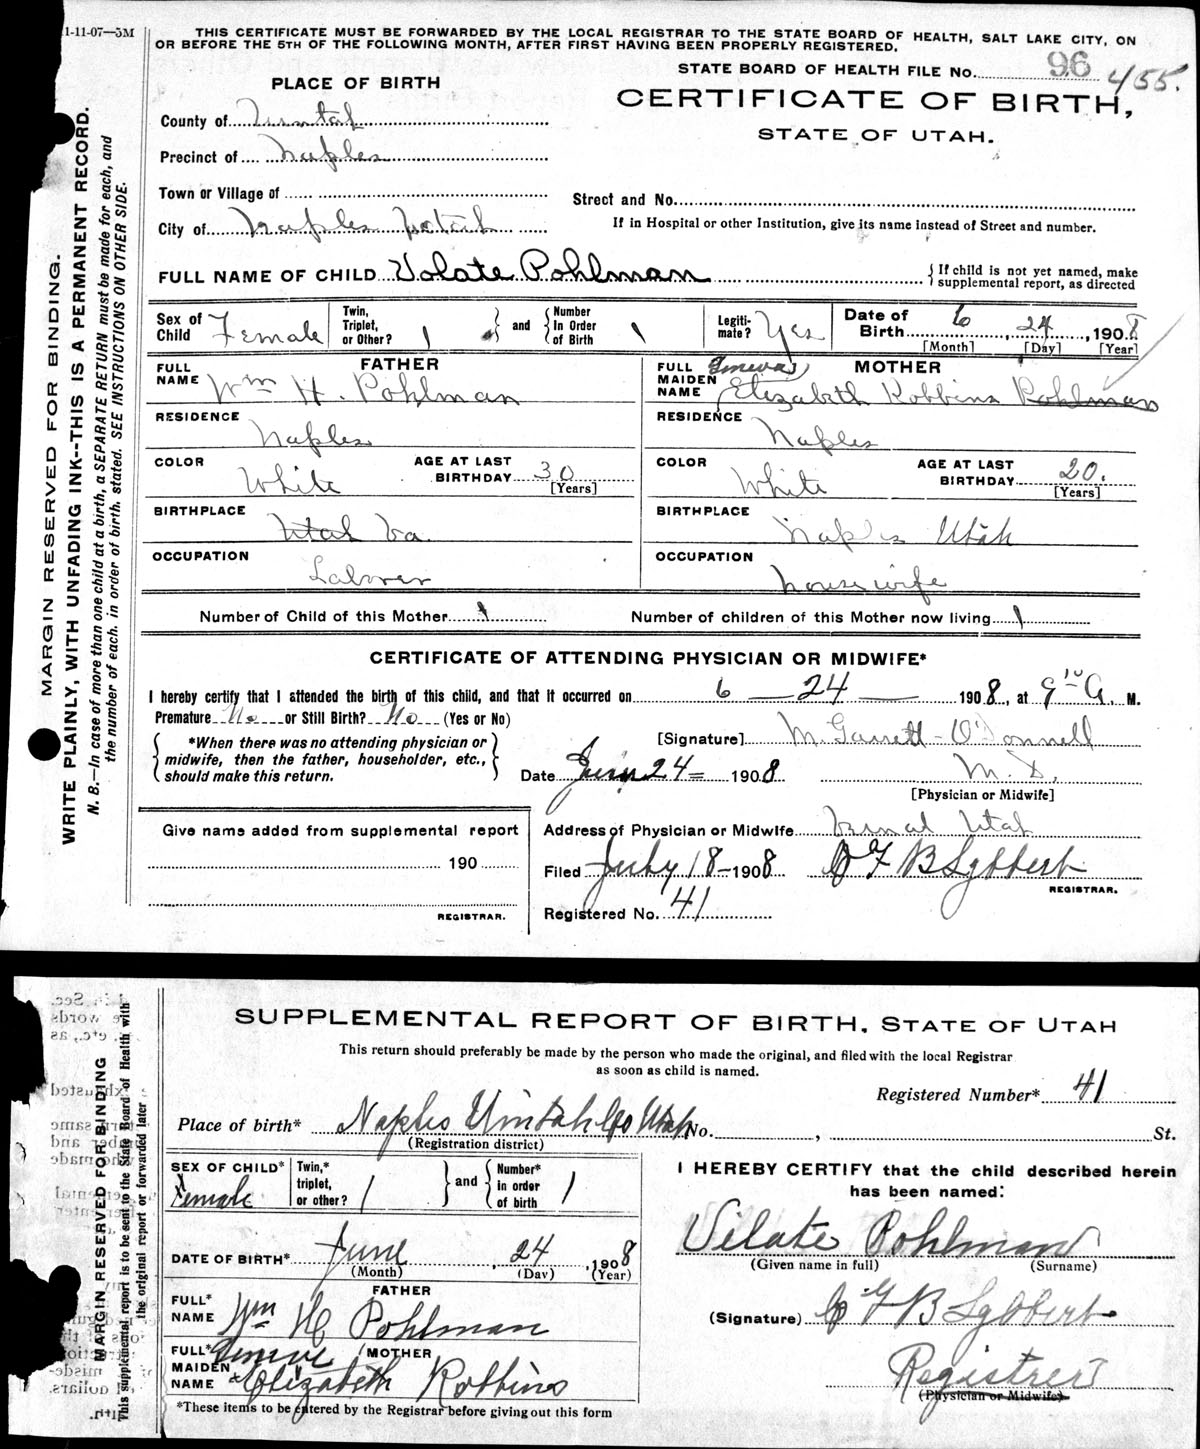 1-11-07—5M
THIS CERTIFICATE MUST BE FORWARDED BY THE LOCAL REGISTRAR TO THE STATE BOARD OF HEALTH, SALT LAKE CITY, ON
OR BEFORE THE 5TH OF THE FOLLOWING MONTH, AFTER FIRST HAVING BEEN PROPERLY REGISTERED.
STATE BOARD OF HEALTH FILE No. 96 455.
PLACE OF BIRTH
CERTIFICATE OF BIRTH,
STATE OF UTAH.
County of Uintah
Precinct of Naples
Town or Village of
Street and No.
City of Naples Utah
If in Hospital or other Institution, give its name instead of Street and number.
FULL NAME OF CHILD Volate Pohlman
{If child is not yet named, make supplemental report, as directed
Sex of Child Female
Twin, Triplet, or Other? 1
and {Number In Order of Birth 1
Legiti-mate? Yes
Date of Birth 6, 24, 1908
[Month] [Day] [Year]
FATHER
FULL NAME Wm H. Pohlman
MOTHER
FULL MAIDEN NAME (Geneva) Elizabeth Robbins Pohlman
RESIDENCE Naples
RESIDENCE Naples
COLOR White
AGE AT LAST BIRTHDAY 30 [Years]
COLOR White
AGE AT LAST BIRTHDAY 20. [Years]
BIRTHPLACE Utah Va.
BIRTHPLACE Naples Utah
OCCUPATION Laborer
OCCUPATION housewife
Number of Child of this Mother 1
Number of children of this Mother now living 1
CERTIFICATE OF ATTENDING PHYSICIAN OR MIDWIFE*
I hereby certify that I attended the birth of this child, and that it occurred on 6 — 24 — 1908, at 9 10 A. M.
Premature No or Still Birth? No (Yes or No)
{*When there was no attending physician or midwife, then the father, householder, etc., should make this return.}
[Signature] M Garrett-O'Donnell
Date June 24 = 1908
M. D.
[Physician or Midwife]
Give name added from supplemental report
190
REGISTRAR.
Address of Physician or Midwife Vernal Utah
Filed July 18-1908 C F B Lybbert
REGISTRAR.
Registered No. 41
MARGIN RESERVED FOR BINDING.
WRITE PLAINLY, WITH UNFADING INK--THIS IS A PERMANENT RECORD.
N. B.—In case of more than one child at a birth, a SEPARATE RETURN must be made for each, and
the number of each, in order of birth, stated. SEE INSTRUCTIONS ON OTHER SIDE.
SUPPLEMENTAL REPORT OF BIRTH, STATE OF UTAH
This return should preferably be made by the person who made the original, and filed with the local Registrar
as soon as child is named.
Registered Number* 41
Place of birth* Naples Uintah Co Utah No. , St.
(Registration district)
SEX OF CHILD* Female
Twin,* triplet, or other? 1
and {Number* in order of birth 1
I HEREBY CERTIFY that the child described herein
has been named:
Vilate Pohlman
(Given name in full) (Surname)
DATE OF BIRTH* June, 24, 1908
(Month) (Day) (Year)
FATHER
FULL* NAME Wm H Pohlman
(Signature) C F B Lybbert
MOTHER
FULL* MAIDEN NAME Geneve Elizabeth Robbins
Registrer
(Physician or Midwife)
*These items to be entered by the Registrar before giving out this form
MARGIN RESERVED FOR BINDING
This supplemental report is to be sent to the State Board of Health with
the original report or forwarded later